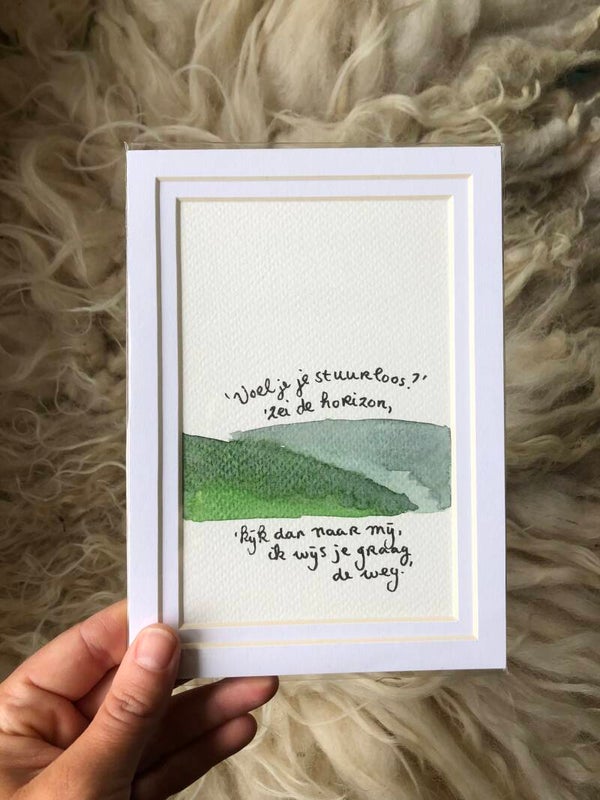 'Voel je je stuurloos?'
zei de horizon,
'kijk dan naar mij,
ik wijs je graag
de weg.'